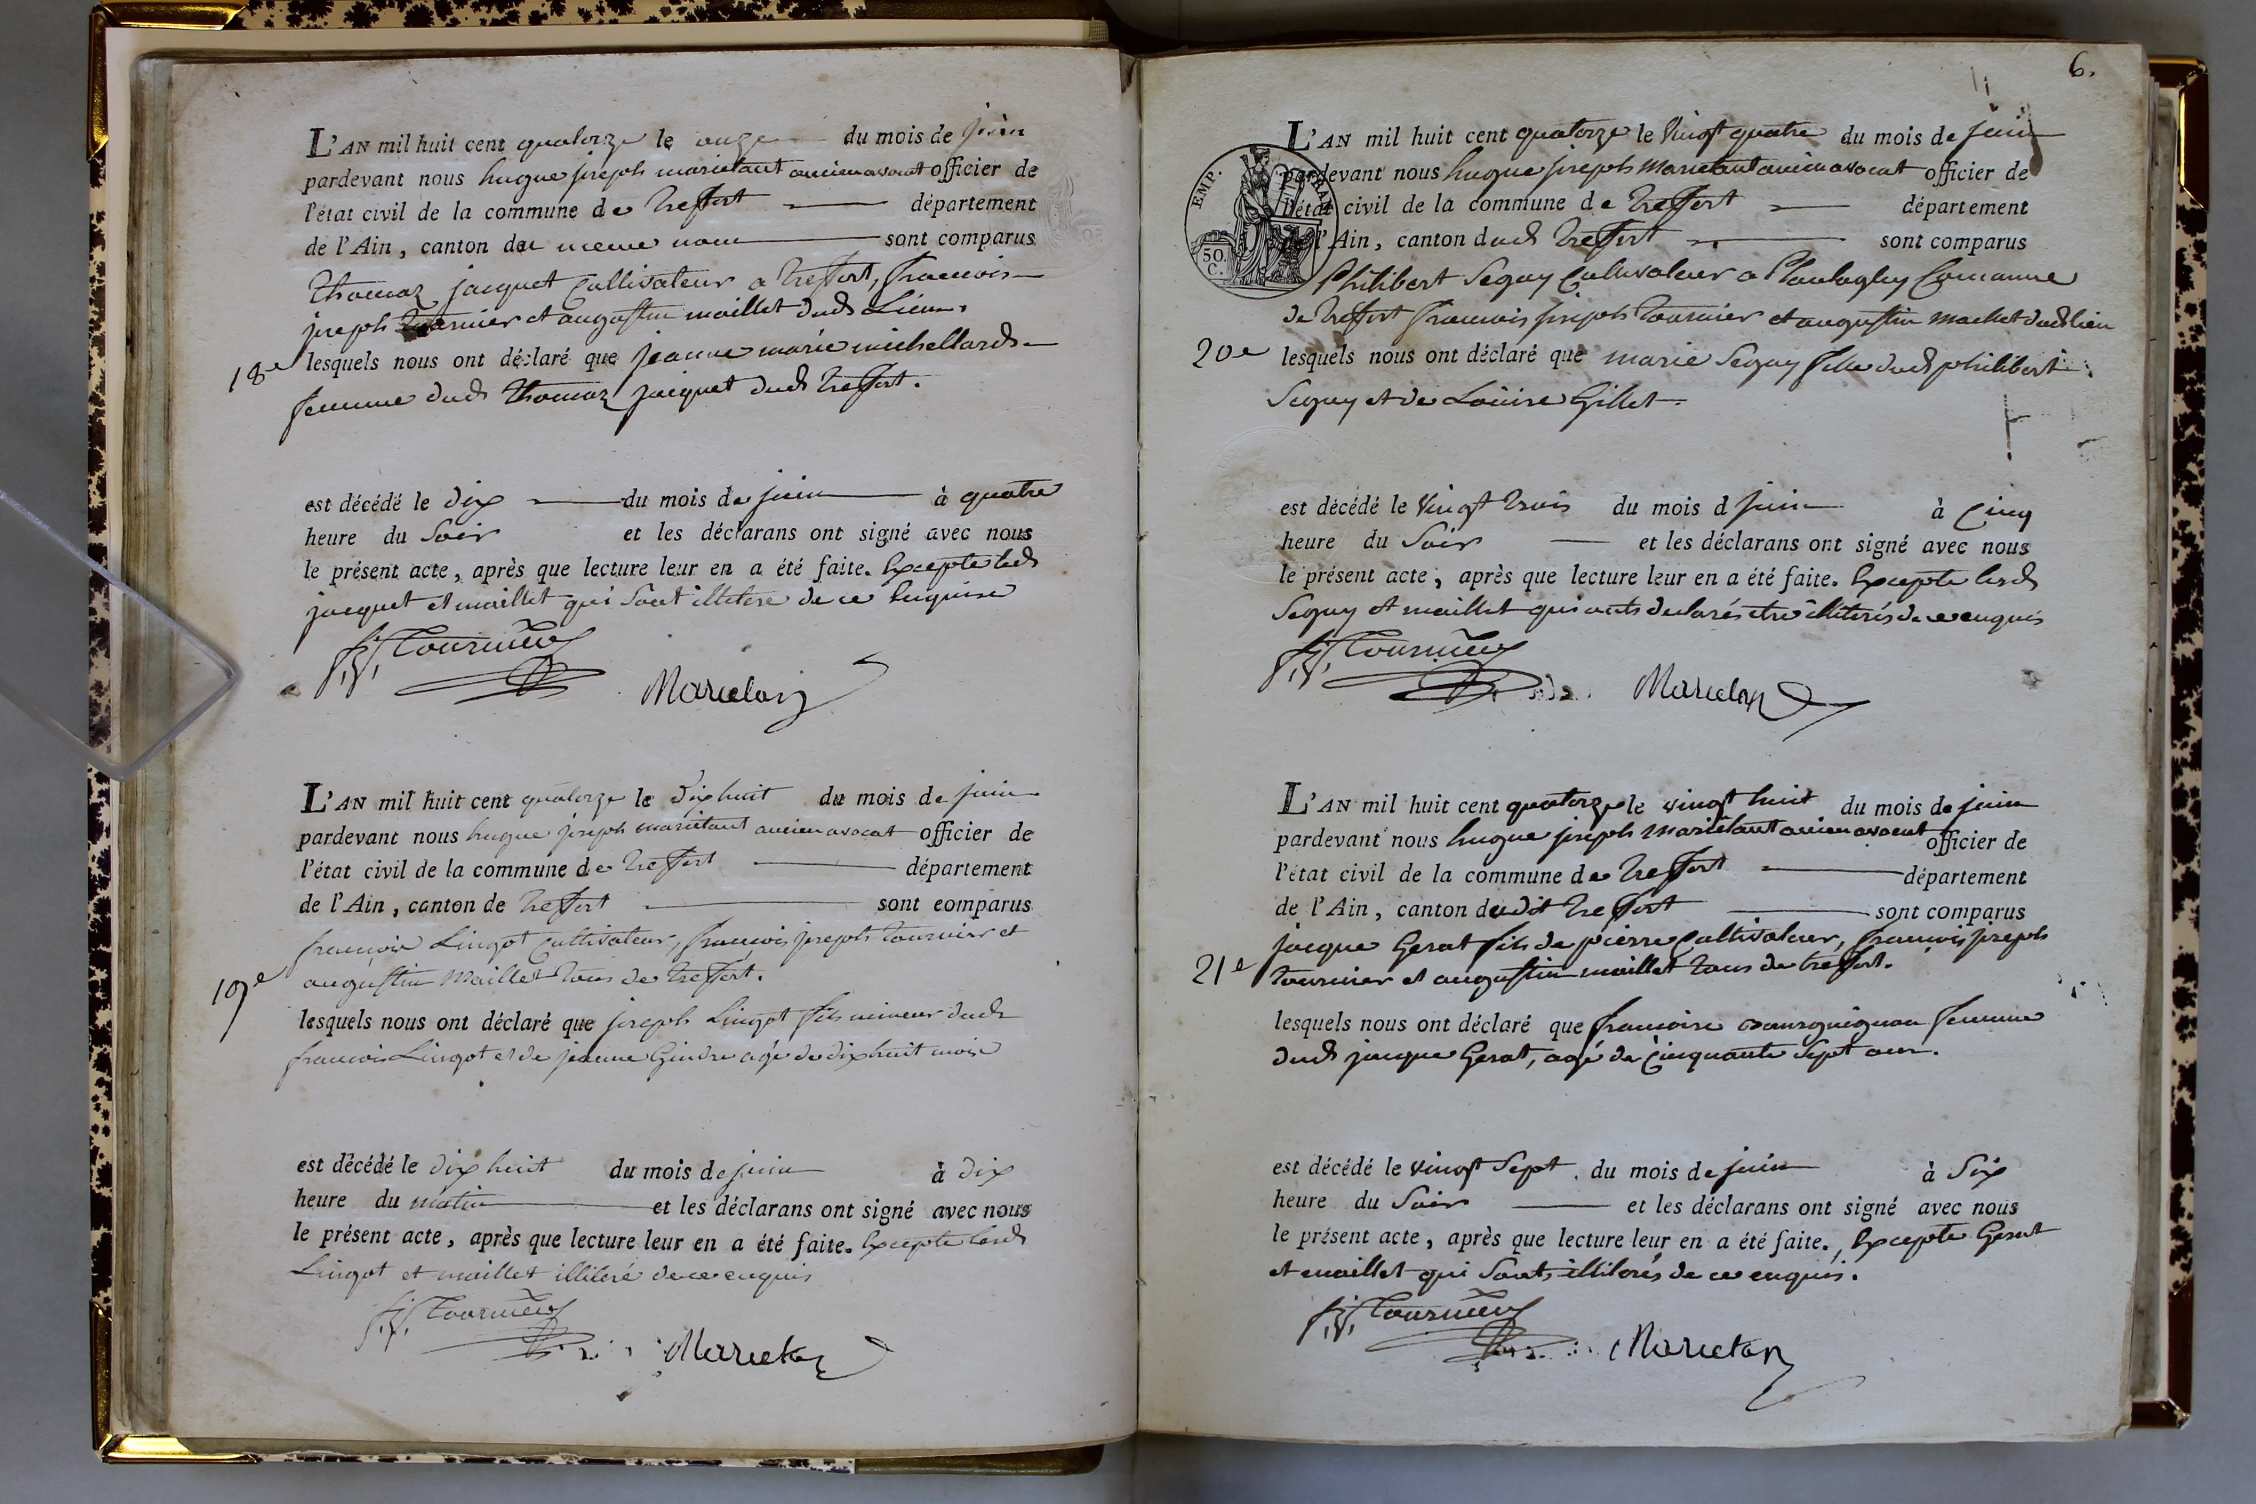 L'AN mil huit cent quatorze le onze du mois de juin
pardevant nous hugue joseph marietant ancien avocat officier de
l'état civil de la commune de Treffort département
de l'Ain, canton du meme nom sont comparus
Thomaz jacquet Cultivateur a Treffort, francois
joseph Tournier et augustin maillet dudt Lieu.
18e
lesquels nous ont déclaré que jeanne marie michellard
femme dudt Thomaz jacquet dudt Treffort.
est décédé le dix du mois de juin à quatre
heure du Soir et les déclarans ont signé avec nous
le présent acte, après que lecture leur en a été faite. Excepte ledt
jacquet et maillet qui sont illitere de ce enquise
f. j. Tournier
Marietan
L'AN mil huit cent quatorze le dix huit du mois de juin
pardevant nous hugue joseph marietant ancien avocat officier de
l'état civil de la commune de Treffort département
de l'Ain, canton de Treffort sont comparus
francois Lingot Cultivateur, francois joseph Tournier et
augustin Maillet tous de Treffort.
19e
lesquels nous ont déclaré que joseph Lingot fils mineur dudt
francois Lingot et de jeanne Gindre agé de dix huit mois
est décédé le dix huit du mois de juin à dix
heure du matin et les déclarans ont signé avec nous
le présent acte, après que lecture leur en a été faite. Excepte lesdt
Lingot et maillet illiteré de ce enquis
f. j. Tournier
Marietan
6.
L'AN mil huit cent quatorze le Vingt quatre du mois de juin
pardevant nous hugue joseph Marietant ancien avocat officier de
l'état civil de la commune de Treffort département
de l'Ain, canton dudt Treffort sont comparus
EMP. FRAN
50. C.
Philibert Seguy Cultivateur a Plantaglay Commune
de Treffort francois joseph Tournier et augustin Maillet dudt lieu
20e
lesquels nous ont déclaré que marie Seguy fille dudt philibert
Seguy et de Louise Gillet.
est décédé le Vingt trois du mois d juin à Cinq
heure du Soir et les déclarans ont signé avec nous
le présent acte, après que lecture leur en a été faite. Excepte lesdt
Seguy et maillet qui onts declarés etre illiterés de ce enquis
f. j. Tournier
Marietan
L'AN mil huit cent quatorze le vingt huit du mois de juin
pardevant nous hugue joseph Marietant ancien avocat officier de
l'état civil de la commune de Treffort département
de l'Ain, canton dudit Treffort sont comparus
jacque Gerat fils de pierre Cultivateur, francois joseph
21e
Tournier et augustin maillet tous de treffort.
lesquels nous ont déclaré que francoise Bourguignon femme
dudt jacque Gerat, agé de Cinquante Sept ans.
est décédé le vingt Sept du mois de juin à Six
heure du Soir et les déclarans ont signé avec nous
le présent acte, après que lecture leur en a été faite., Excepte Gerat
et maillet qui Sonts illiterés de ce enquis.
f. j. Tournier
Marietan